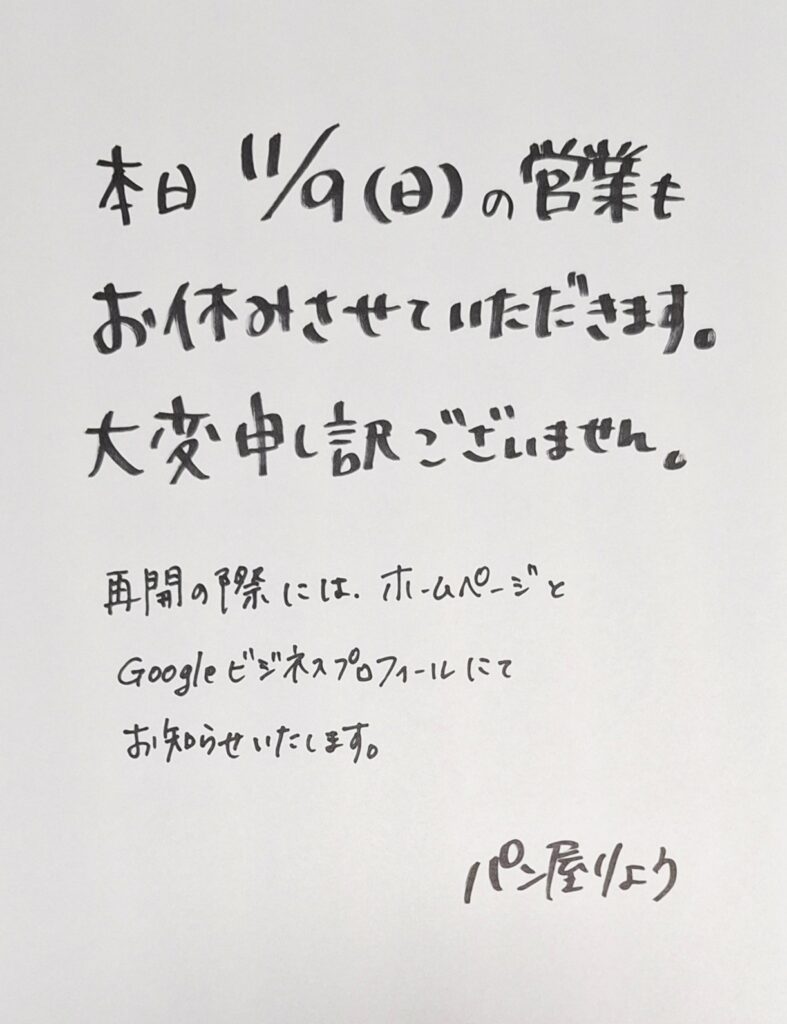 本日 11/9(日)の営業も
お休みさせていただきます。
大変申し訳ございません。
再開の際には、ホームページと
Googleビジネスプロフィールにて
お知らせいたします。
パン屋りょう